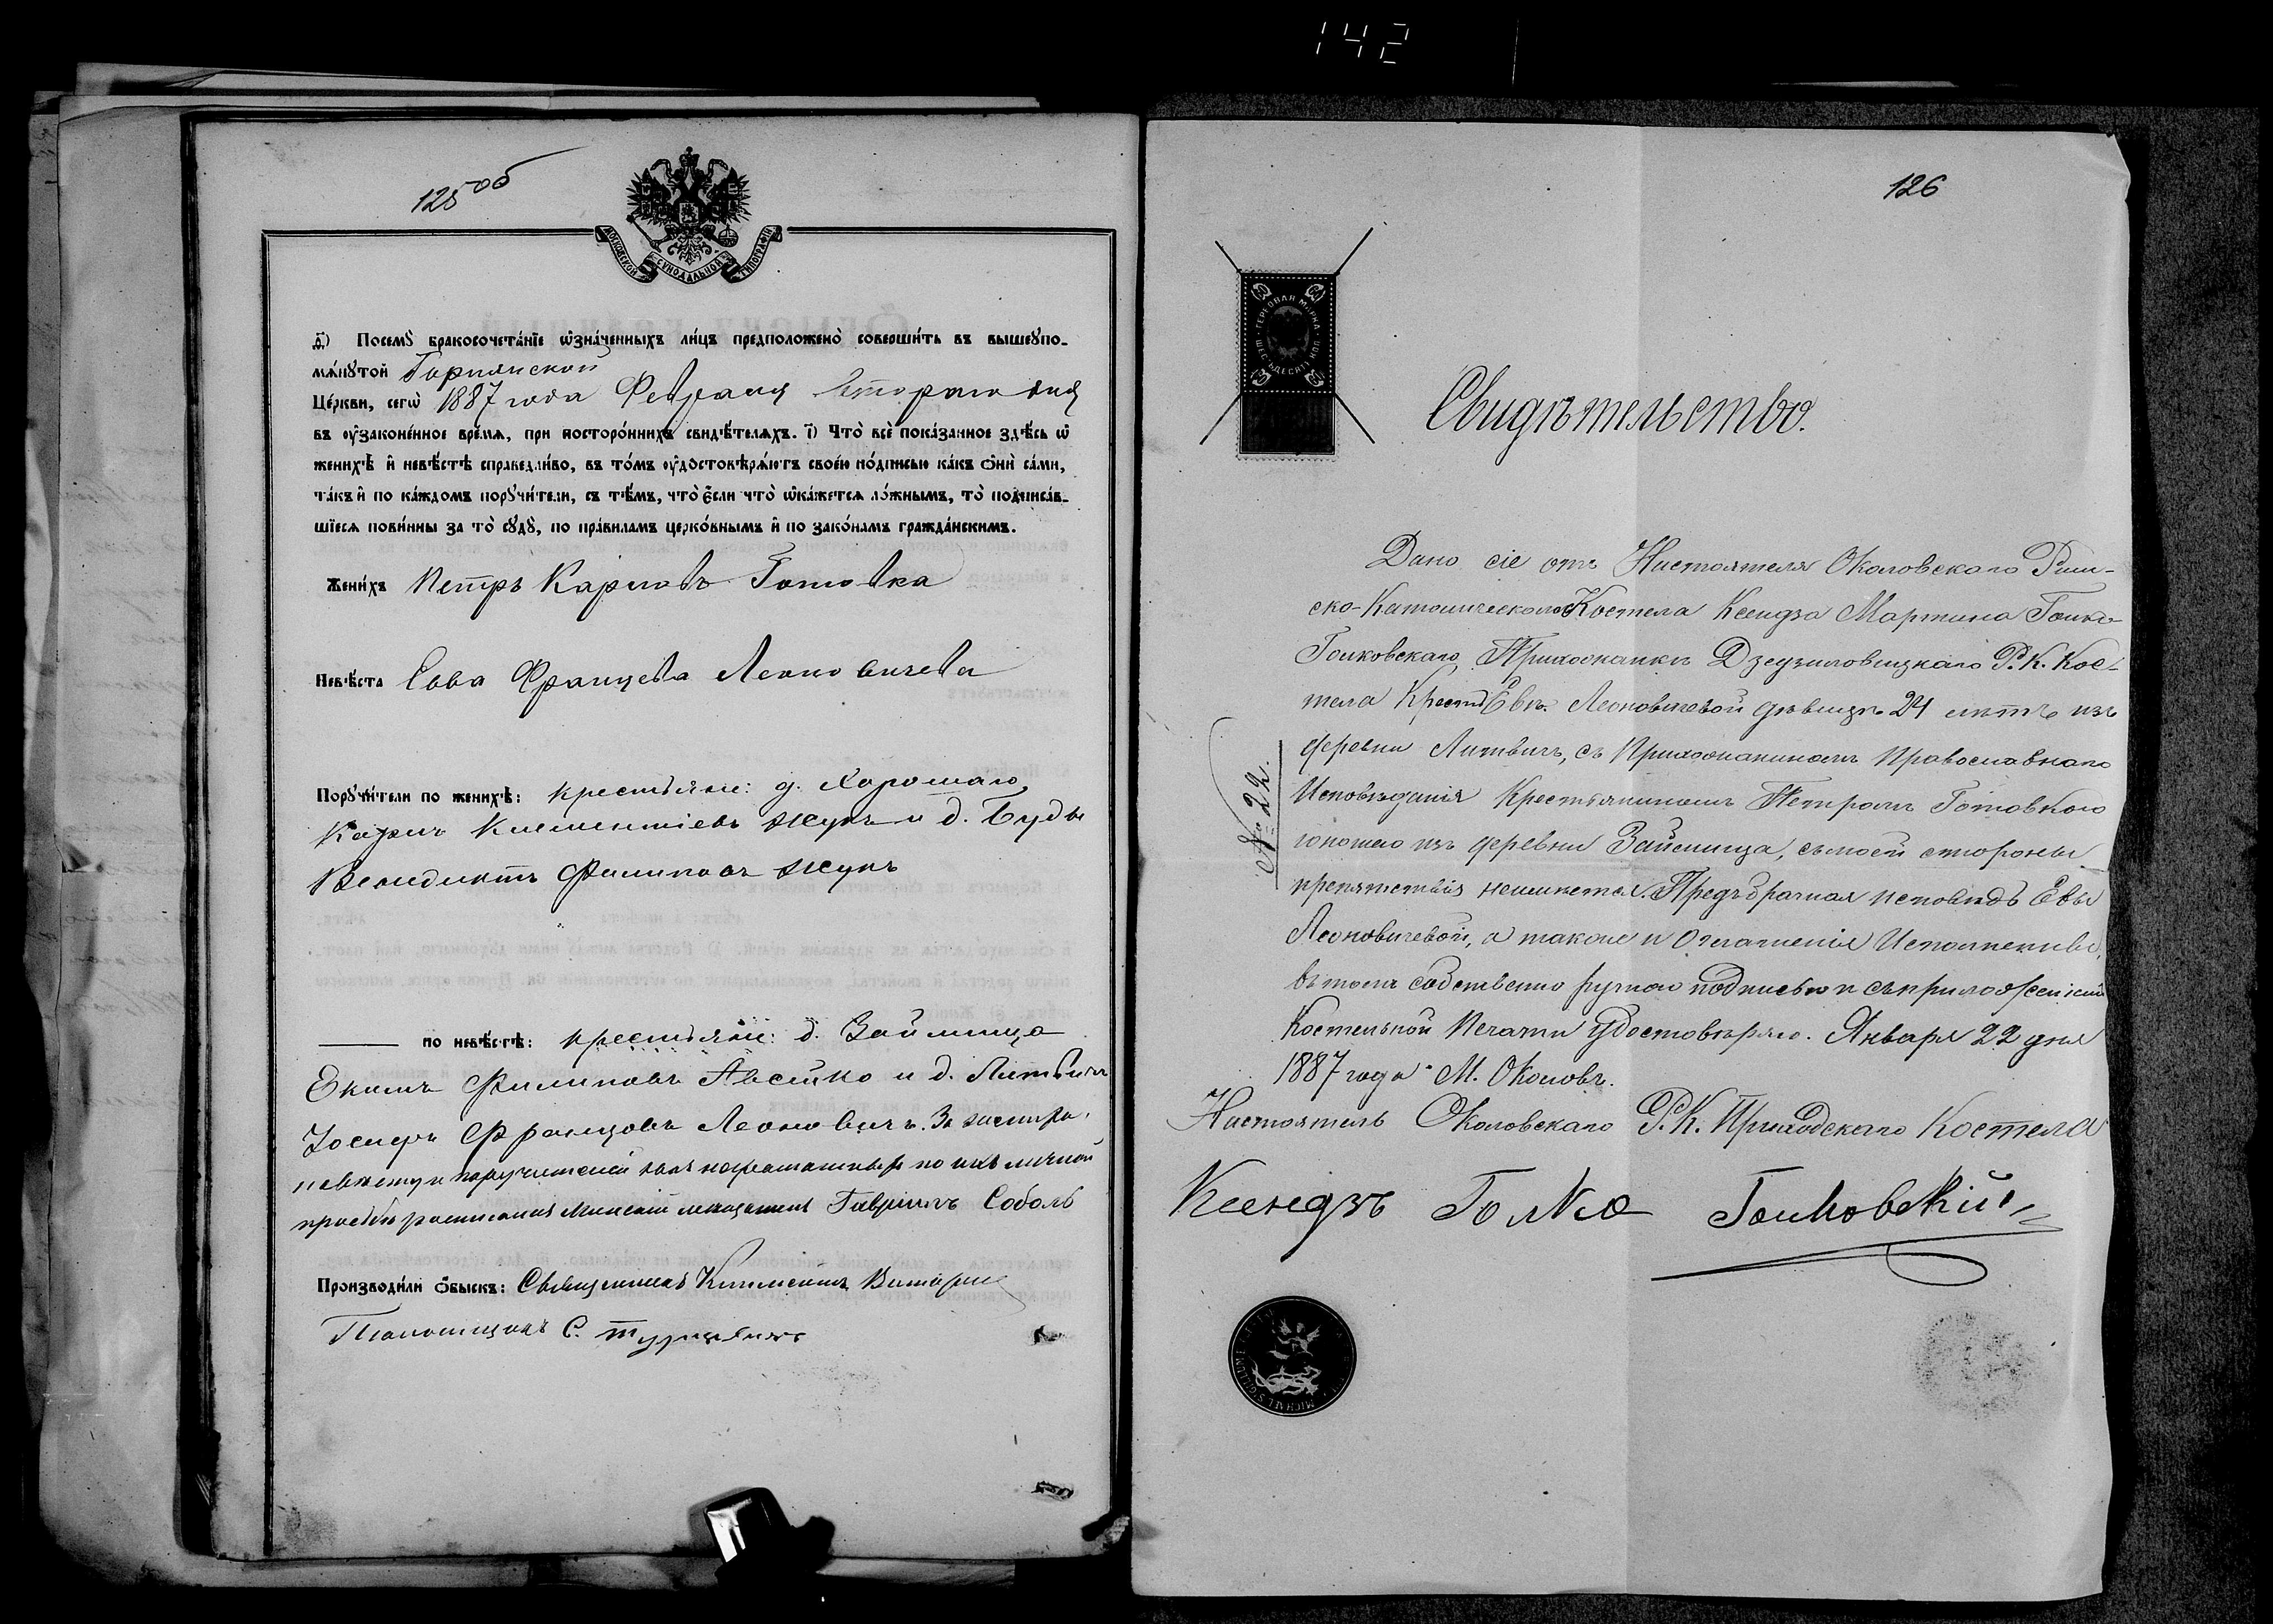 142
125об
МОСКОВСКОЙ СѴНОДАЛЬНОЙ ТИПОГРАФІИ
д҃) Посемꙋ̀ бракосочета́нїе ѡ҆зна́ченныхъ ли́цъ предположено̀ соверши́ть въ вышеꙋпо-
мѧ́нꙋтой
Це́ркви, сегѡ̀ 1887 года Февраля втораго дня
въ ᲂу҆зако́ненное вре́мѧ, при посторо́ннихъ свидѣ́телѧхъ. і҃) Что̀ всѐ пока́занное здѣ́сь ѡ҆
женихѣ̀ и҆ невѣ́стѣ справедли́во, въ то́мъ ᲂу҆достовѣрѧ́ютъ свое́ю по́дписью ка́къ ѻ҆нѝ са́ми,
та́къ и҆ по ка́ждомъ порꙋчи́тели, съ тѣ́мъ, что̀ є҆́сли что̀ ѡ҆ка́жетсѧ ло́жнымъ, то̀ подписа́в-
шїесѧ пови́нны за то̀ сꙋдꙋ̀, по пра́виламъ церко́внымъ и҆ по зако́намъ гражда́нскимъ.
Жени́хъ Петръ Карповъ Готовка
Невѣ́ста Ева Францева Леоновичева
Порꙋчи́тели по женихѣ̀: крестьяне: д. Хорошаго
Карпъ Климентіевъ Жукъ и д. Буды
Венедиктъ Филиповъ Жукъ
по невѣ́стѣ: крестьяне: д. Займища
Екимъ Филиповъ Авсейко и д. Литвичъ
Іосифъ Францовъ Леоновичъ. За жениха,
невесту и поручителей какъ неграматныхъ по ихъ личной
просьбѣ росписался Минскій мещанинъ Гавріилъ Соболь
Производи́ли ѻ҆́быскъ: Священникъ
Псаломщикъ С.
126
ГЕРБОВАЯ МАРКА
ШЕСТЬДЕСЯТЪ КОП
Свидѣтельство.
Дано сіе отъ Настоятеля Околовскаго Рим-
ско-Католическаго Костела Ксендза Мартина Голко-
Голковскаго, Прихожанкѣ Дзедзиловицкаго Р. К. Кос-
тела Крест. Евѣ Леоновичевой дѣвицѣ 24 лѣтъ изъ
деревни Литвичъ, съ Прихожаниномъ Православнаго
Исповѣданія Крестьяниномъ Петромъ Готовкою
юношею изъ деревни Займища, съ моей стороны
препятствія неимѣется. Предъбрачная исповѣдь Евы
Леоновичевой, а также и Оглашенія Исполнены,
въ томъ собственно ручною подписью и съ приложеніемъ
Костельной Печати удостовѣряю. Января 22 дня
1887 года М. Околовъ.
№ 22.
Настоятель Околовскаго Р. К. Приходскаго Костела
Ксендзъ Голко Голковскій